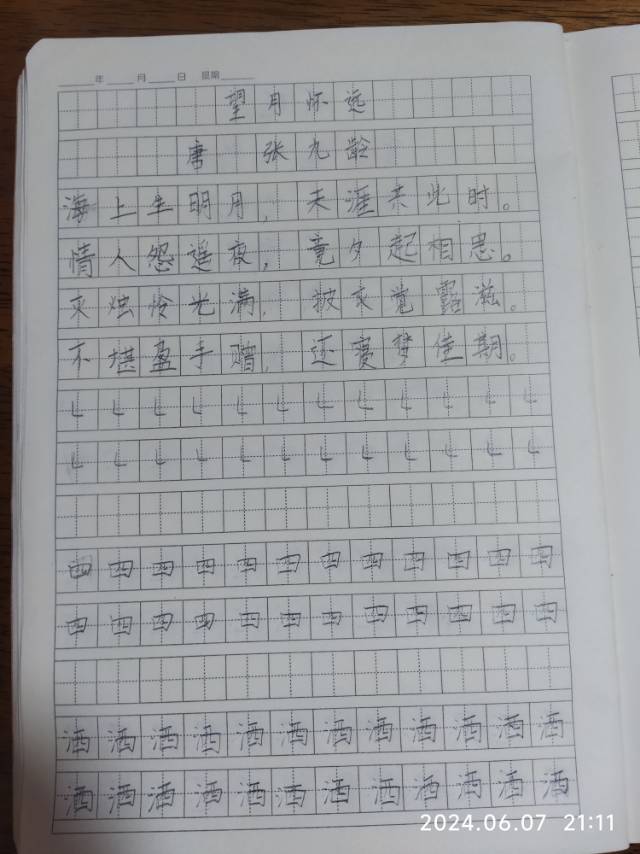 年 月 日 星期
望月怀远
唐 张九龄
海上生明月，天涯共此时。
情人怨遥夜，竟夕起相思。
灭烛怜光满，披衣觉露滋。
不堪盈手赠，还寝梦佳期。
乚乚乚乚乚乚乚乚乚乚乚乚
乚乚乚乚乚乚乚乚乚乚乚乚
四四四四四四四四四四四四
四四四四四四四四四四四四
酒酒酒酒酒酒酒酒酒酒酒酒
酒酒酒酒酒酒酒酒酒酒酒酒
2024.06.07 21:11